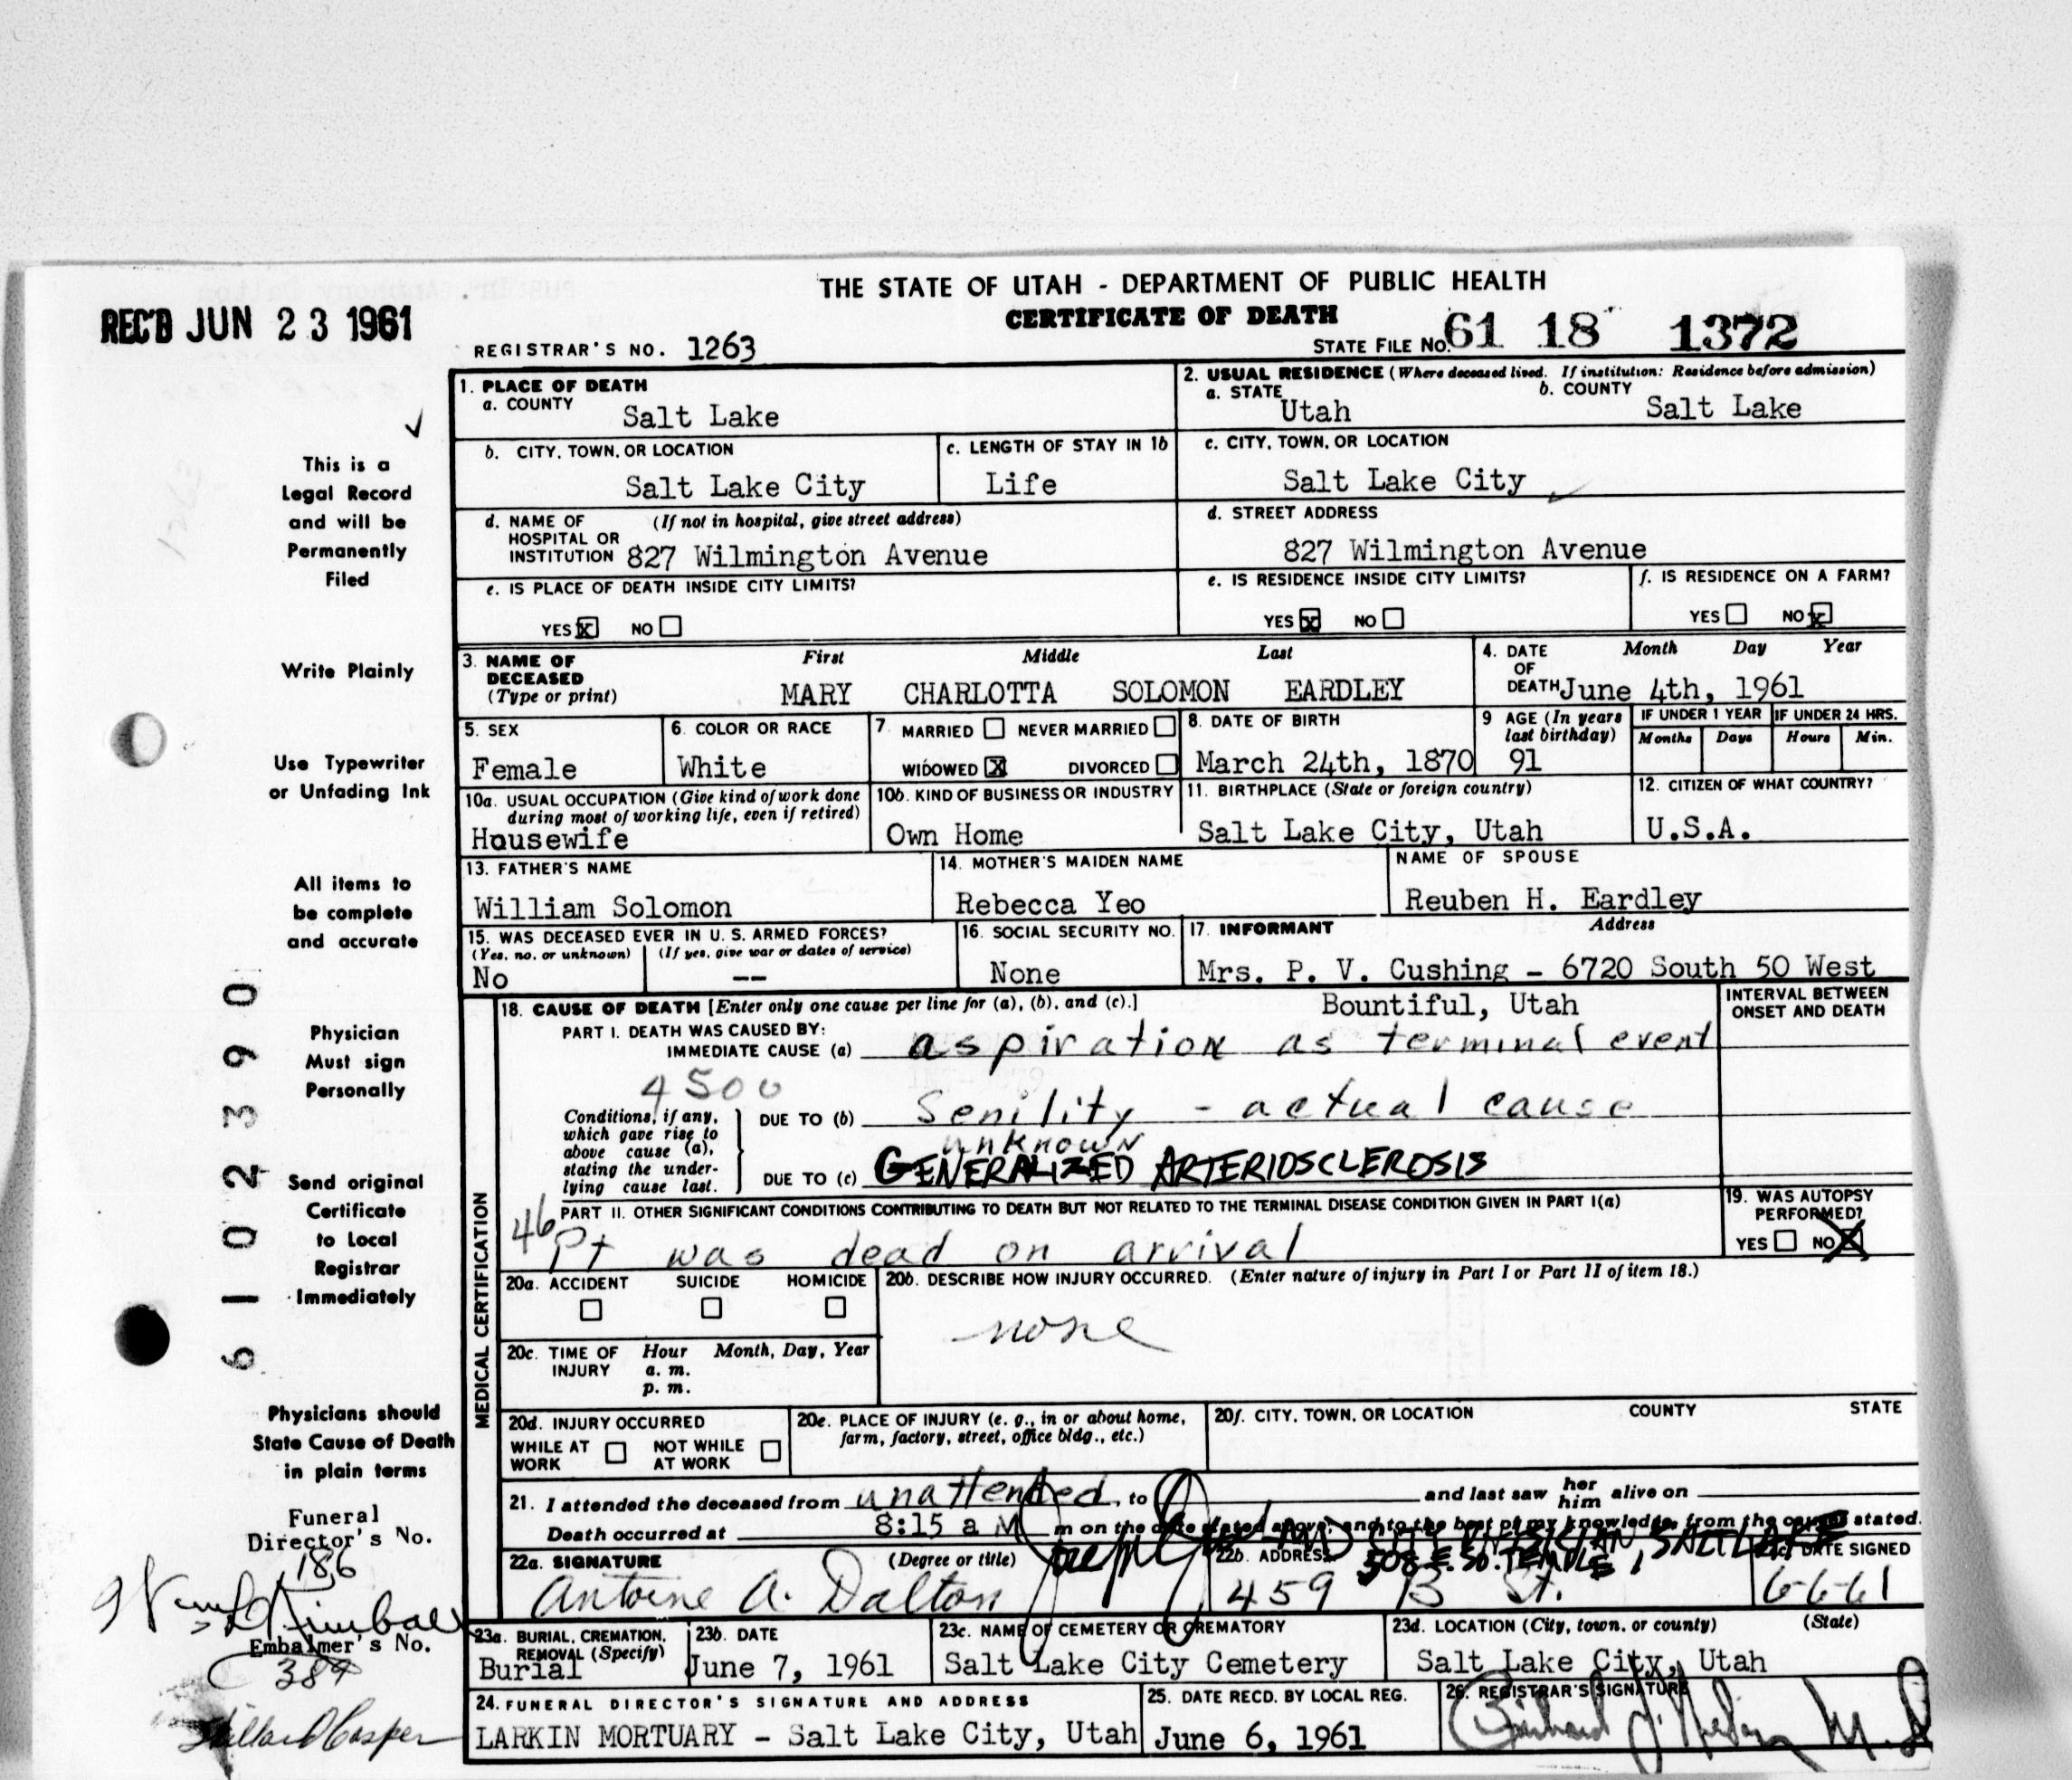 THE STATE OF UTAH - DEPARTMENT OF PUBLIC HEALTH
CERTIFICATE OF DEATH
REC'D JUN 23 1961
REGISTRAR'S NO. 1263
STATE FILE NO. 61 18 1372
1. PLACE OF DEATH
a. COUNTY Salt Lake
2. USUAL RESIDENCE (Where deceased lived. If institution: Residence before admission)
a. STATE Utah b. COUNTY Salt Lake
b. CITY, TOWN, OR LOCATION Salt Lake City
c. LENGTH OF STAY IN 1b Life
c. CITY, TOWN, OR LOCATION Salt Lake City
d. NAME OF HOSPITAL OR INSTITUTION (If not in hospital, give street address) 827 Wilmington Avenue
d. STREET ADDRESS 827 Wilmington Avenue
e. IS PLACE OF DEATH INSIDE CITY LIMITS?
YES X NO
e. IS RESIDENCE INSIDE CITY LIMITS?
YES X NO
f. IS RESIDENCE ON A FARM?
YES NO X
3. NAME OF DECEASED (Type or print)
First Middle Last
MARY CHARLOTTA SOLOMON EARDLEY
4. DATE OF DEATH Month Day Year
June 4th, 1961
5. SEX Female
6. COLOR OR RACE White
7 MARRIED NEVER MARRIED
WIDOWED X DIVORCED
8. DATE OF BIRTH March 24th, 1870
9 AGE (In years last birthday) 91
IF UNDER 1 YEAR Months Days
IF UNDER 24 HRS. Hours Min.
10a. USUAL OCCUPATION (Give kind of work done during most of working life, even if retired)
Housewife
10b. KIND OF BUSINESS OR INDUSTRY
Own Home
11. BIRTHPLACE (State or foreign country)
Salt Lake City, Utah
12. CITIZEN OF WHAT COUNTRY?
U.S.A.
13. FATHER'S NAME
William Solomon
14. MOTHER'S MAIDEN NAME
Rebecca Yeo
NAME OF SPOUSE
Reuben H. Eardley
15. WAS DECEASED EVER IN U. S. ARMED FORCES?
(Yes, no, or unknown) (If yes, give war or dates of service)
No --
16. SOCIAL SECURITY NO.
None
17. INFORMANT Address
Mrs. P. V. Cushing - 6720 South 50 West
Bountiful, Utah
18. CAUSE OF DEATH [Enter only one cause per line for (a), (b), and (c).]
INTERVAL BETWEEN ONSET AND DEATH
PART I. DEATH WAS CAUSED BY:
IMMEDIATE CAUSE (a) aspiration as terminal event
4500
Conditions, if any, which gave rise to above cause (a), stating the underlying cause last.
DUE TO (b) Senility - actual cause
unknown
DUE TO (c) GENERALIZED ARTERIOSCLEROSIS
PART II. OTHER SIGNIFICANT CONDITIONS CONTRIBUTING TO DEATH BUT NOT RELATED TO THE TERMINAL DISEASE CONDITION GIVEN IN PART I(a)
46
Pt was dead on arrival
19. WAS AUTOPSY PERFORMED?
YES NO X
MEDICAL CERTIFICATION
20a. ACCIDENT SUICIDE HOMICIDE
20b. DESCRIBE HOW INJURY OCCURRED. (Enter nature of injury in Part I or Part II of item 18.)
none
20c. TIME OF INJURY Hour Month, Day, Year
a. m.
p. m.
20d. INJURY OCCURRED
WHILE AT WORK NOT WHILE AT WORK
20e. PLACE OF INJURY (e. g., in or about home, farm, factory, street, office bldg., etc.)
20f. CITY, TOWN, OR LOCATION COUNTY STATE
21. I attended the deceased from unattended, to and last saw her him alive on
Death occurred at 8:15 a M m on the date stated above; and to the best of my knowledge, from the causes stated.
MD CITY PHYSICIAN, SALT LAKE
508 E. SO. TEMPLE
22a. SIGNATURE (Degree or title)
Antoine A. Dalton
22b. ADDRESS
459 B St.
DATE SIGNED
6-6-61
23a. BURIAL, CREMATION, REMOVAL (Specify)
Burial
23b. DATE
June 7, 1961
23c. NAME OF CEMETERY OR CREMATORY
Salt Lake City Cemetery
23d. LOCATION (City, town, or county) (State)
Salt Lake City, Utah
24. FUNERAL DIRECTOR'S SIGNATURE AND ADDRESS
LARKIN MORTUARY - Salt Lake City, Utah
25. DATE RECD. BY LOCAL REG.
June 6, 1961
26. REGISTRAR'S SIGNATURE
This is a
Legal Record
and will be
Permanently
Filed
Write Plainly
Use Typewriter
or Unfading Ink
All items to
be complete
and accurate
Physician
Must sign
Personally
Send original
Certificate
to Local
Registrar
Immediately
Physicians should
State Cause of Death
in plain terms
Funeral
Director's No.
186
Kimball
Embalmer's No.
384
61 02390